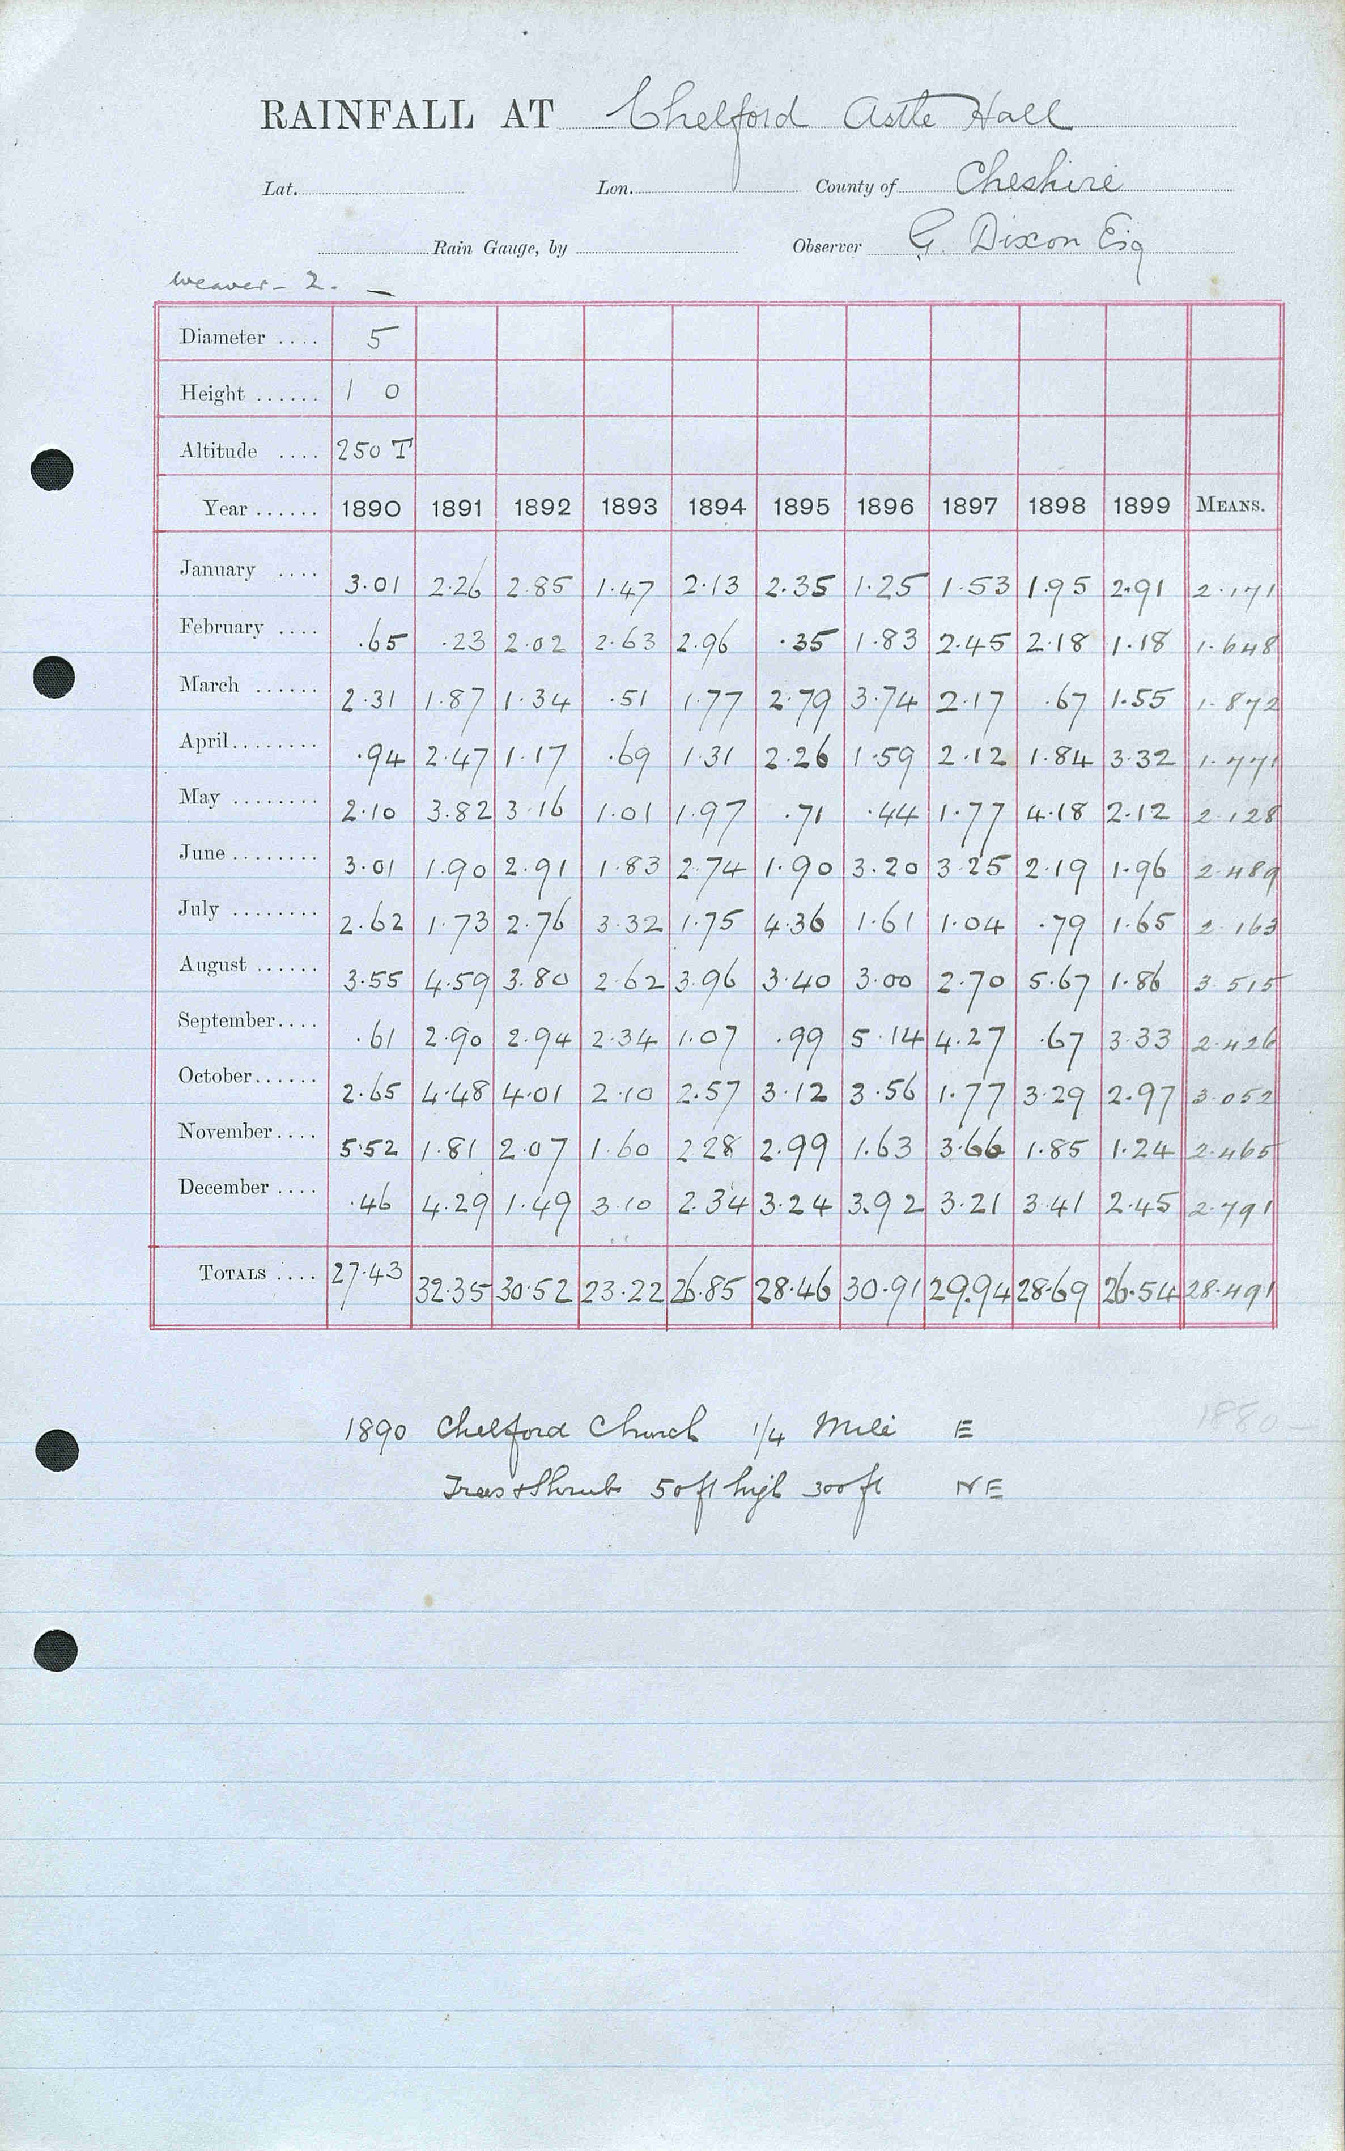 RAINFALL AT Chelford Astle Hall
Lat. Lon. County of Cheshire
Rain Gauge, by Observer G. Dixon Esq
Weaver - 2. -
Diameter .... 5
Height ...... 1 0
Altitude .... 250 T
Year ...... 1890 1891 1892 1893 1894 1895 1896 1897 1898 1899 MEANS.
January .... 3.01 2.26 2.85 1.47 2.13 2.35 1.25 1.53 1.95 2.91 2.171
February .... .65 .23 2.02 2.63 2.96 .35 1.83 2.45 2.18 1.18 1.648
March ...... 2.31 1.87 1.34 .51 1.77 2.79 3.74 2.17 .67 1.55 1.872
April ........ .94 2.47 1.17 .69 1.31 2.26 1.59 2.12 1.84 3.32 1.771
May ........ 2.10 3.82 3.16 1.01 1.97 .71 .44 1.77 4.18 2.12 2.128
June ........ 3.01 1.90 2.91 1.83 2.74 1.90 3.20 3.25 2.19 1.96 2.489
July ........ 2.62 1.73 2.76 3.32 1.75 4.36 1.61 1.04 .79 1.65 2.163
August ...... 3.55 4.59 3.80 2.62 3.96 3.40 3.00 2.70 5.67 1.86 3.515
September .... .61 2.90 2.94 2.34 1.07 .99 5.14 4.27 .67 3.33 2.426
October ...... 2.65 4.48 4.01 2.10 2.57 3.12 3.56 1.77 3.29 2.97 3.052
November .... 5.52 1.81 2.07 1.60 2 28 2.99 1.63 3.66 1.85 1.24 2.465
December .... .46 4.29 1.49 3.10 2.34 3.24 3.92 3.21 3.41 2.45 2.791
TOTALS .... 27.43 32.35 30.52 23.22 26.85 28.46 30.91 29.94 28.69 26.54 28.491
1890 Chelford Church 1/4 Mile E
Trees & Shrubs 50 ft high 300 ft NE